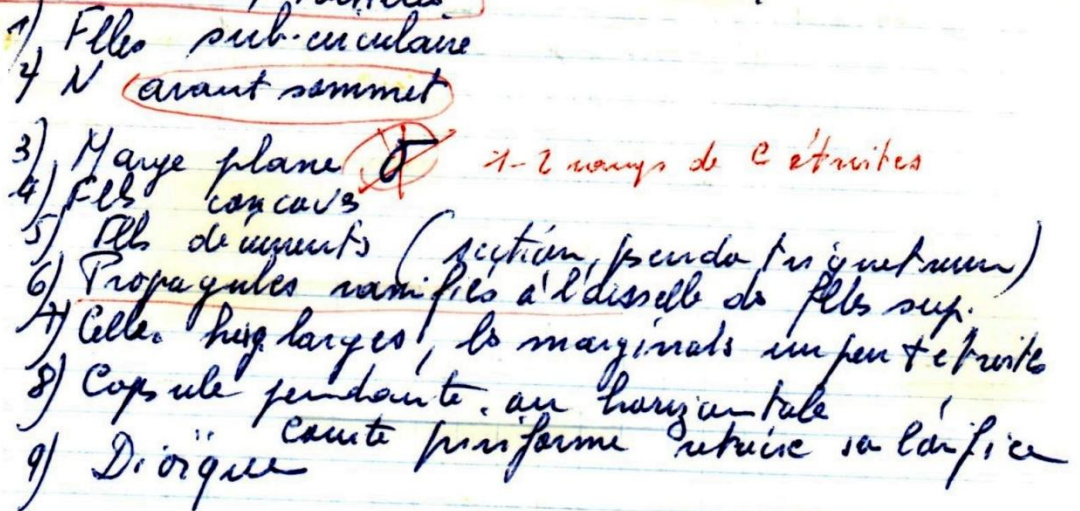 1) Flles sub-circulaire
2) N avant sommet
3) Marge plane 1-2 rangs de C étroites
4) Flls concavs
5) Flls décurrents (section, pseudo triquetrum)
6) Propagules ramifiés à l'aisselle de flls sup.
7) Celles hexg larges, ls marginals un peu + étroites
8) Capsule pendante, ou horizontale
courte piriforme rétrécie sa l'orifice
9) Dioïque